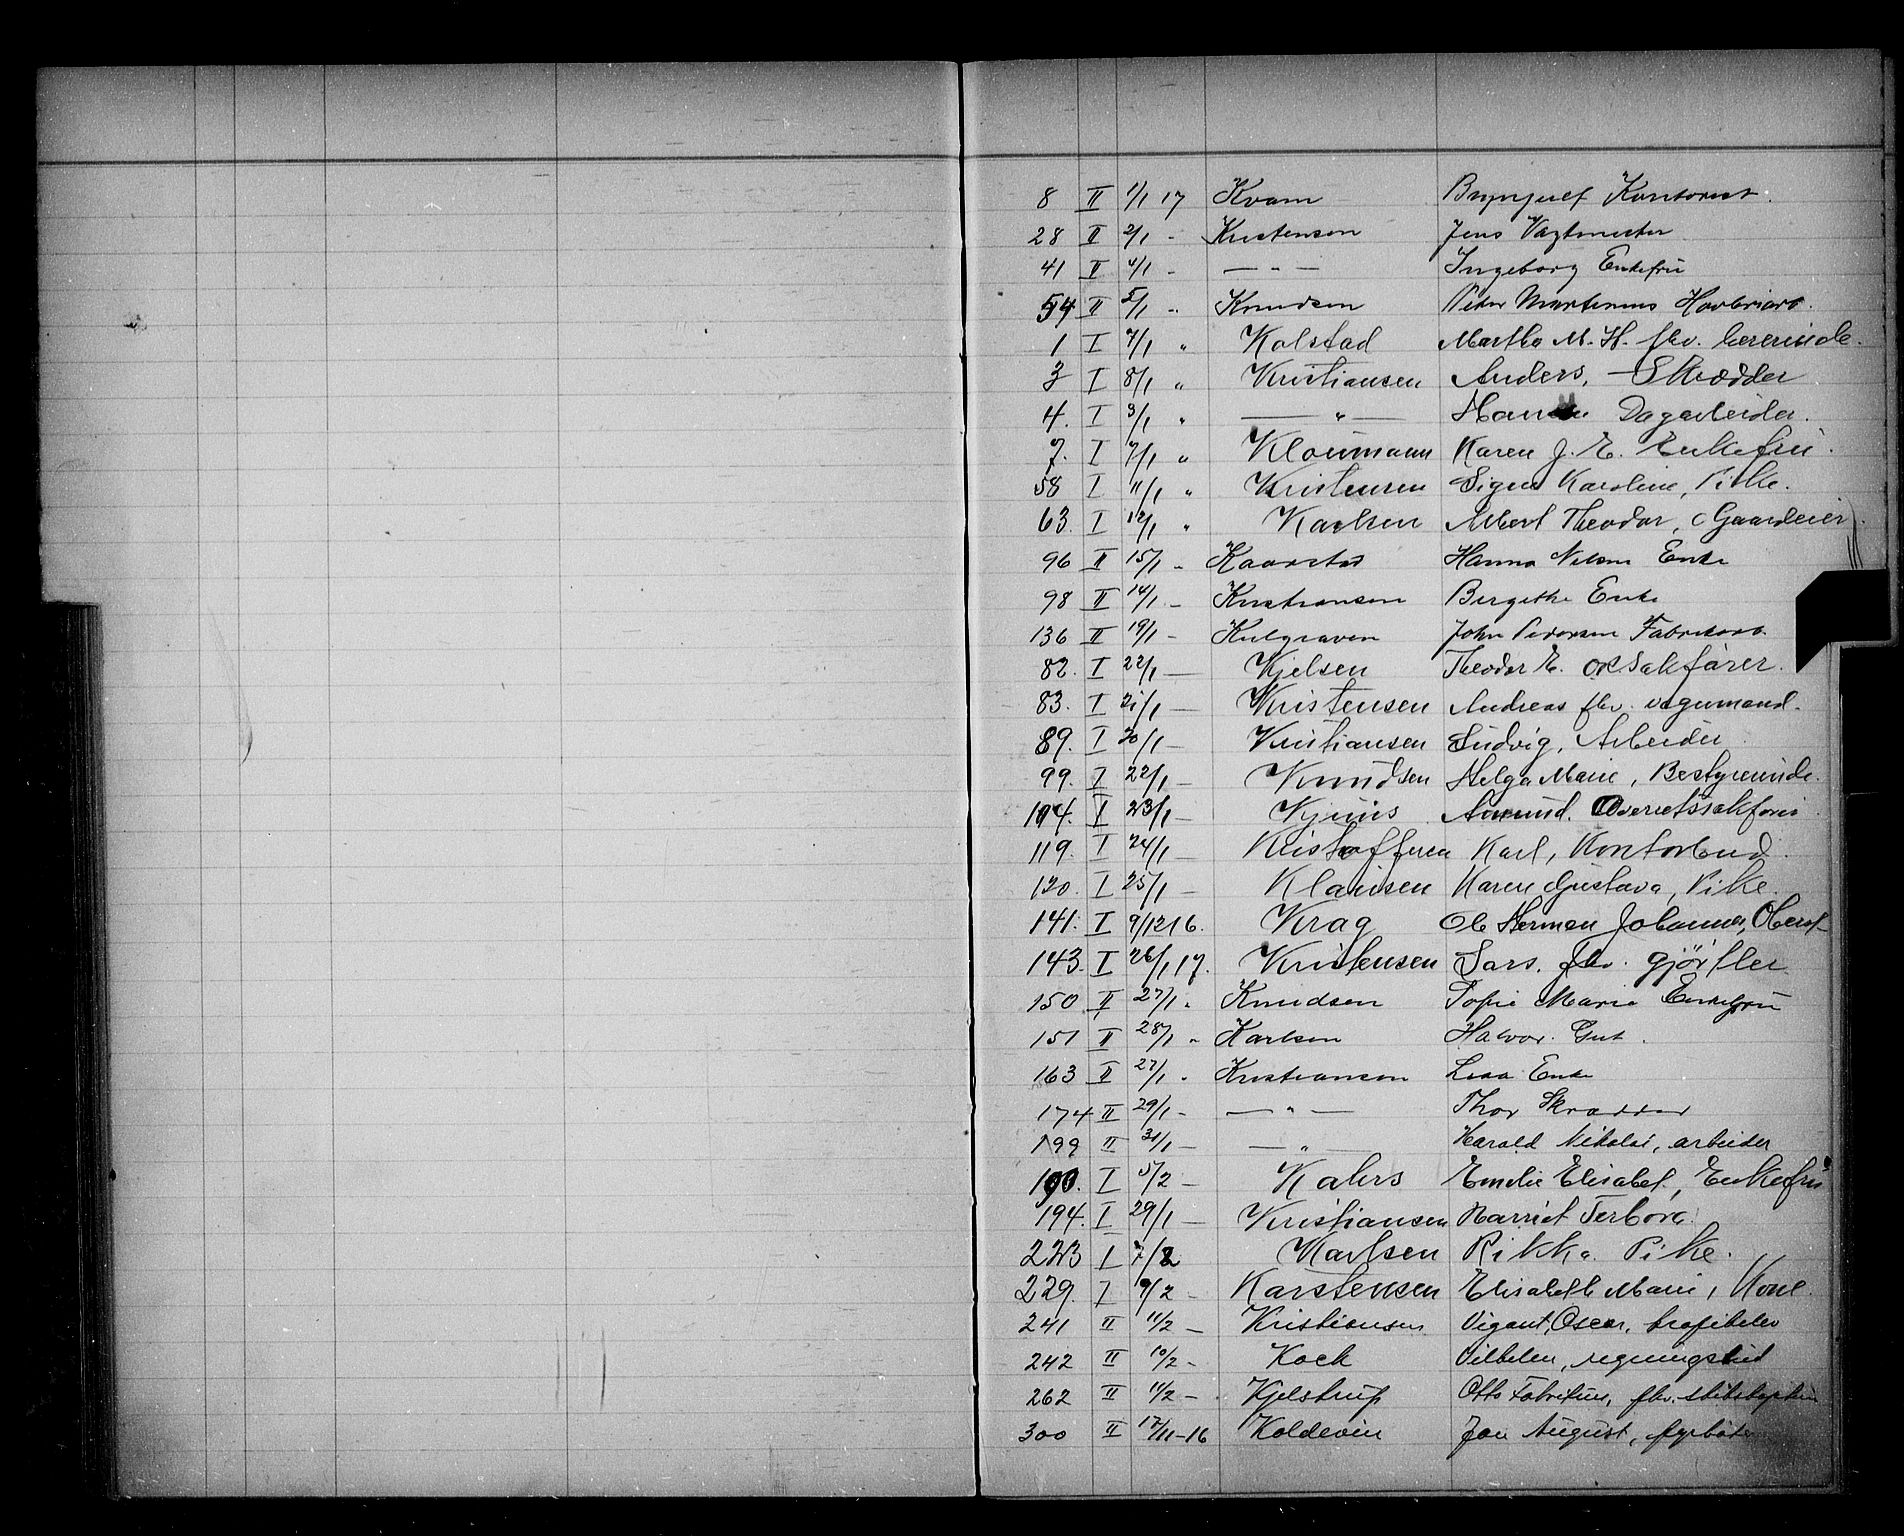 8 II 1/1 17 Kvam Brynjulf Kontorist.
28 II 2/1 - Kristensen Jens Vagtmester
41 II 4/1 - — " — Ingeborg Enkefru
54 II 5/1 " Knudsen Peter Martinius
1 I 7/1 " Kolstad Martha M. H. fhv. lærerinde.
3 I 8/1 " Kristiansen Anders, Skrædder
4. I 3/1 " — " — Dagarbeider.
7. I 7/1 " Kloumann Karen J. E. Enkefru.
58 I 11/1 " Kristensen Signe Karoline, Pike.
63. I 12/1 " Karlsen Albert Theodor, Gaardeier.
96 II 15/1 - Kaarstad Hanna Enke
98 II 14/1 - Kristiansen Bergithe Enke
136 II 19/1 - Kulgraven John Pedersen Fabrikarb.
82. I 22/1 — Kjelsen Theodor E. OR Sakfører.
83. I 21/1 — Kristensen Andreas fhv. vognmand.
89. I 20/1 — Kristiansen Ludvig, Arbeider
99. I 22/1 - Knudsen Helga Marie, Bestyrerinde.
104. I 23/1 - Amund. Overretssakfører
119. I 24/1 — Kristoffersen Karl, Kontorbud.
120. I 25/1 — Klausen Karen Gustava, Pike.
141. I 9/12 16. Krag Ole Herman Johannes, Oberst
143. I 26/1 17. Kristensen Lars. fhv. gjørtler.
150 II 27/1 " Knudsen Sofie Marie Enkefru
151 II 28/1 " Karlsen Halvor. Gut.
163 II 27/1 " Kristiansen Enke
174 II 29/1 - — " — Thor Skrædder
199 II 31/1 - — " — Harald Nikolai, arbeider
190. I 5/2 - Kahrs Emilie Elisabet, Enkefru
194. I 29/1 — Kristiansen Harriet
223 I 7/2 Karlsen Rikka. Pike.
229. I 9/2 - Karstensen Elisabeth Marie, Kone.
241 II 11/2 - Kristiansen Vigant, Oscar,
242 II 10/2 - Kock regningsbud
262 II 11/2 - Kjelstrup Otto Fabritius, fhv. skibskaptein
300 II 17/11-16 Koldevin Jon August, fyrbøter